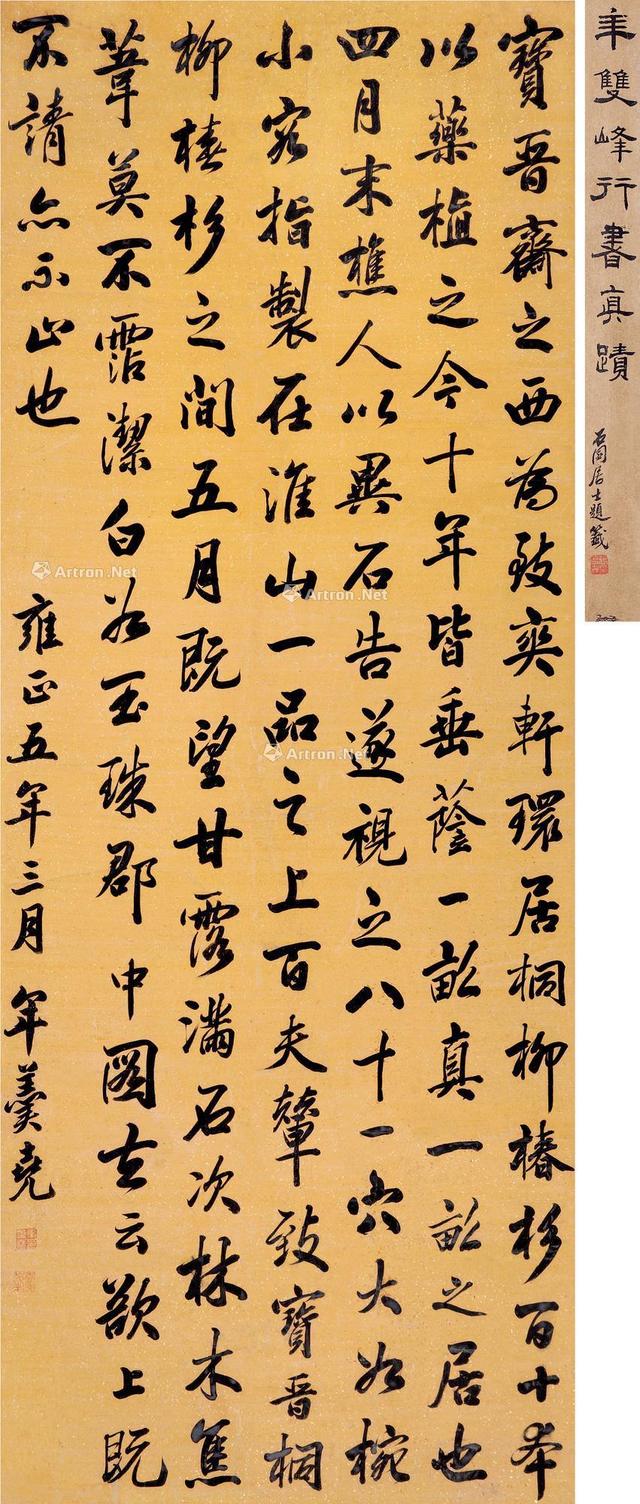 年雙峰行書真蹟
石居士題籤
寶晉齋之西為致爽軒環居桐柳椿杉百十本
以藥植之今十年皆垂蔭一畝真一畝之居也
四月末樵人以異石告遂視之八十一穴大如椀
小容指製在淮山一品之上百夫輦致寶晉桐
柳椿杉之間五月既望甘露滿石次林木焦
葦莫不霑潔白如玉珠郡中圖去云欲上既
不請亦不止也 雍正五年三月 年羹堯
Artron.Net
Artron.Net
Artron.Net